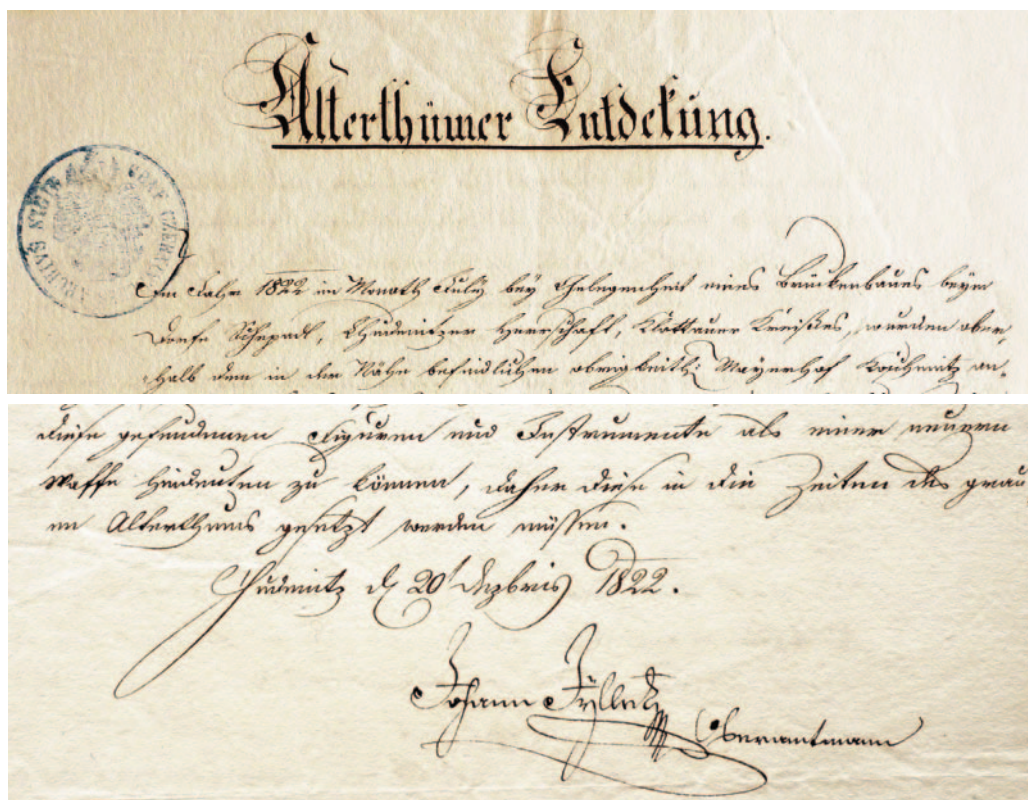 Alterthümer Entdekung.
Im Jahr 1822 im Monath July bey Gelegenheit eines Brückenbaues beym
Dorfe Chudnitzer Herrschaft, Klattauer Kreißes, wurden ober-
halb dem in der Nähe befindlichen obrigkeitl: Mayerhof an-
diese gefundenen Figuren und Instrumente als einer neuern
Waffe hindeuten zu können, daher diese in die Zeiten des grau
en Alterthums gesetzt werden müssen.
Chudnitz d 20t Dezbris 1822.
Johann Oberamtmann